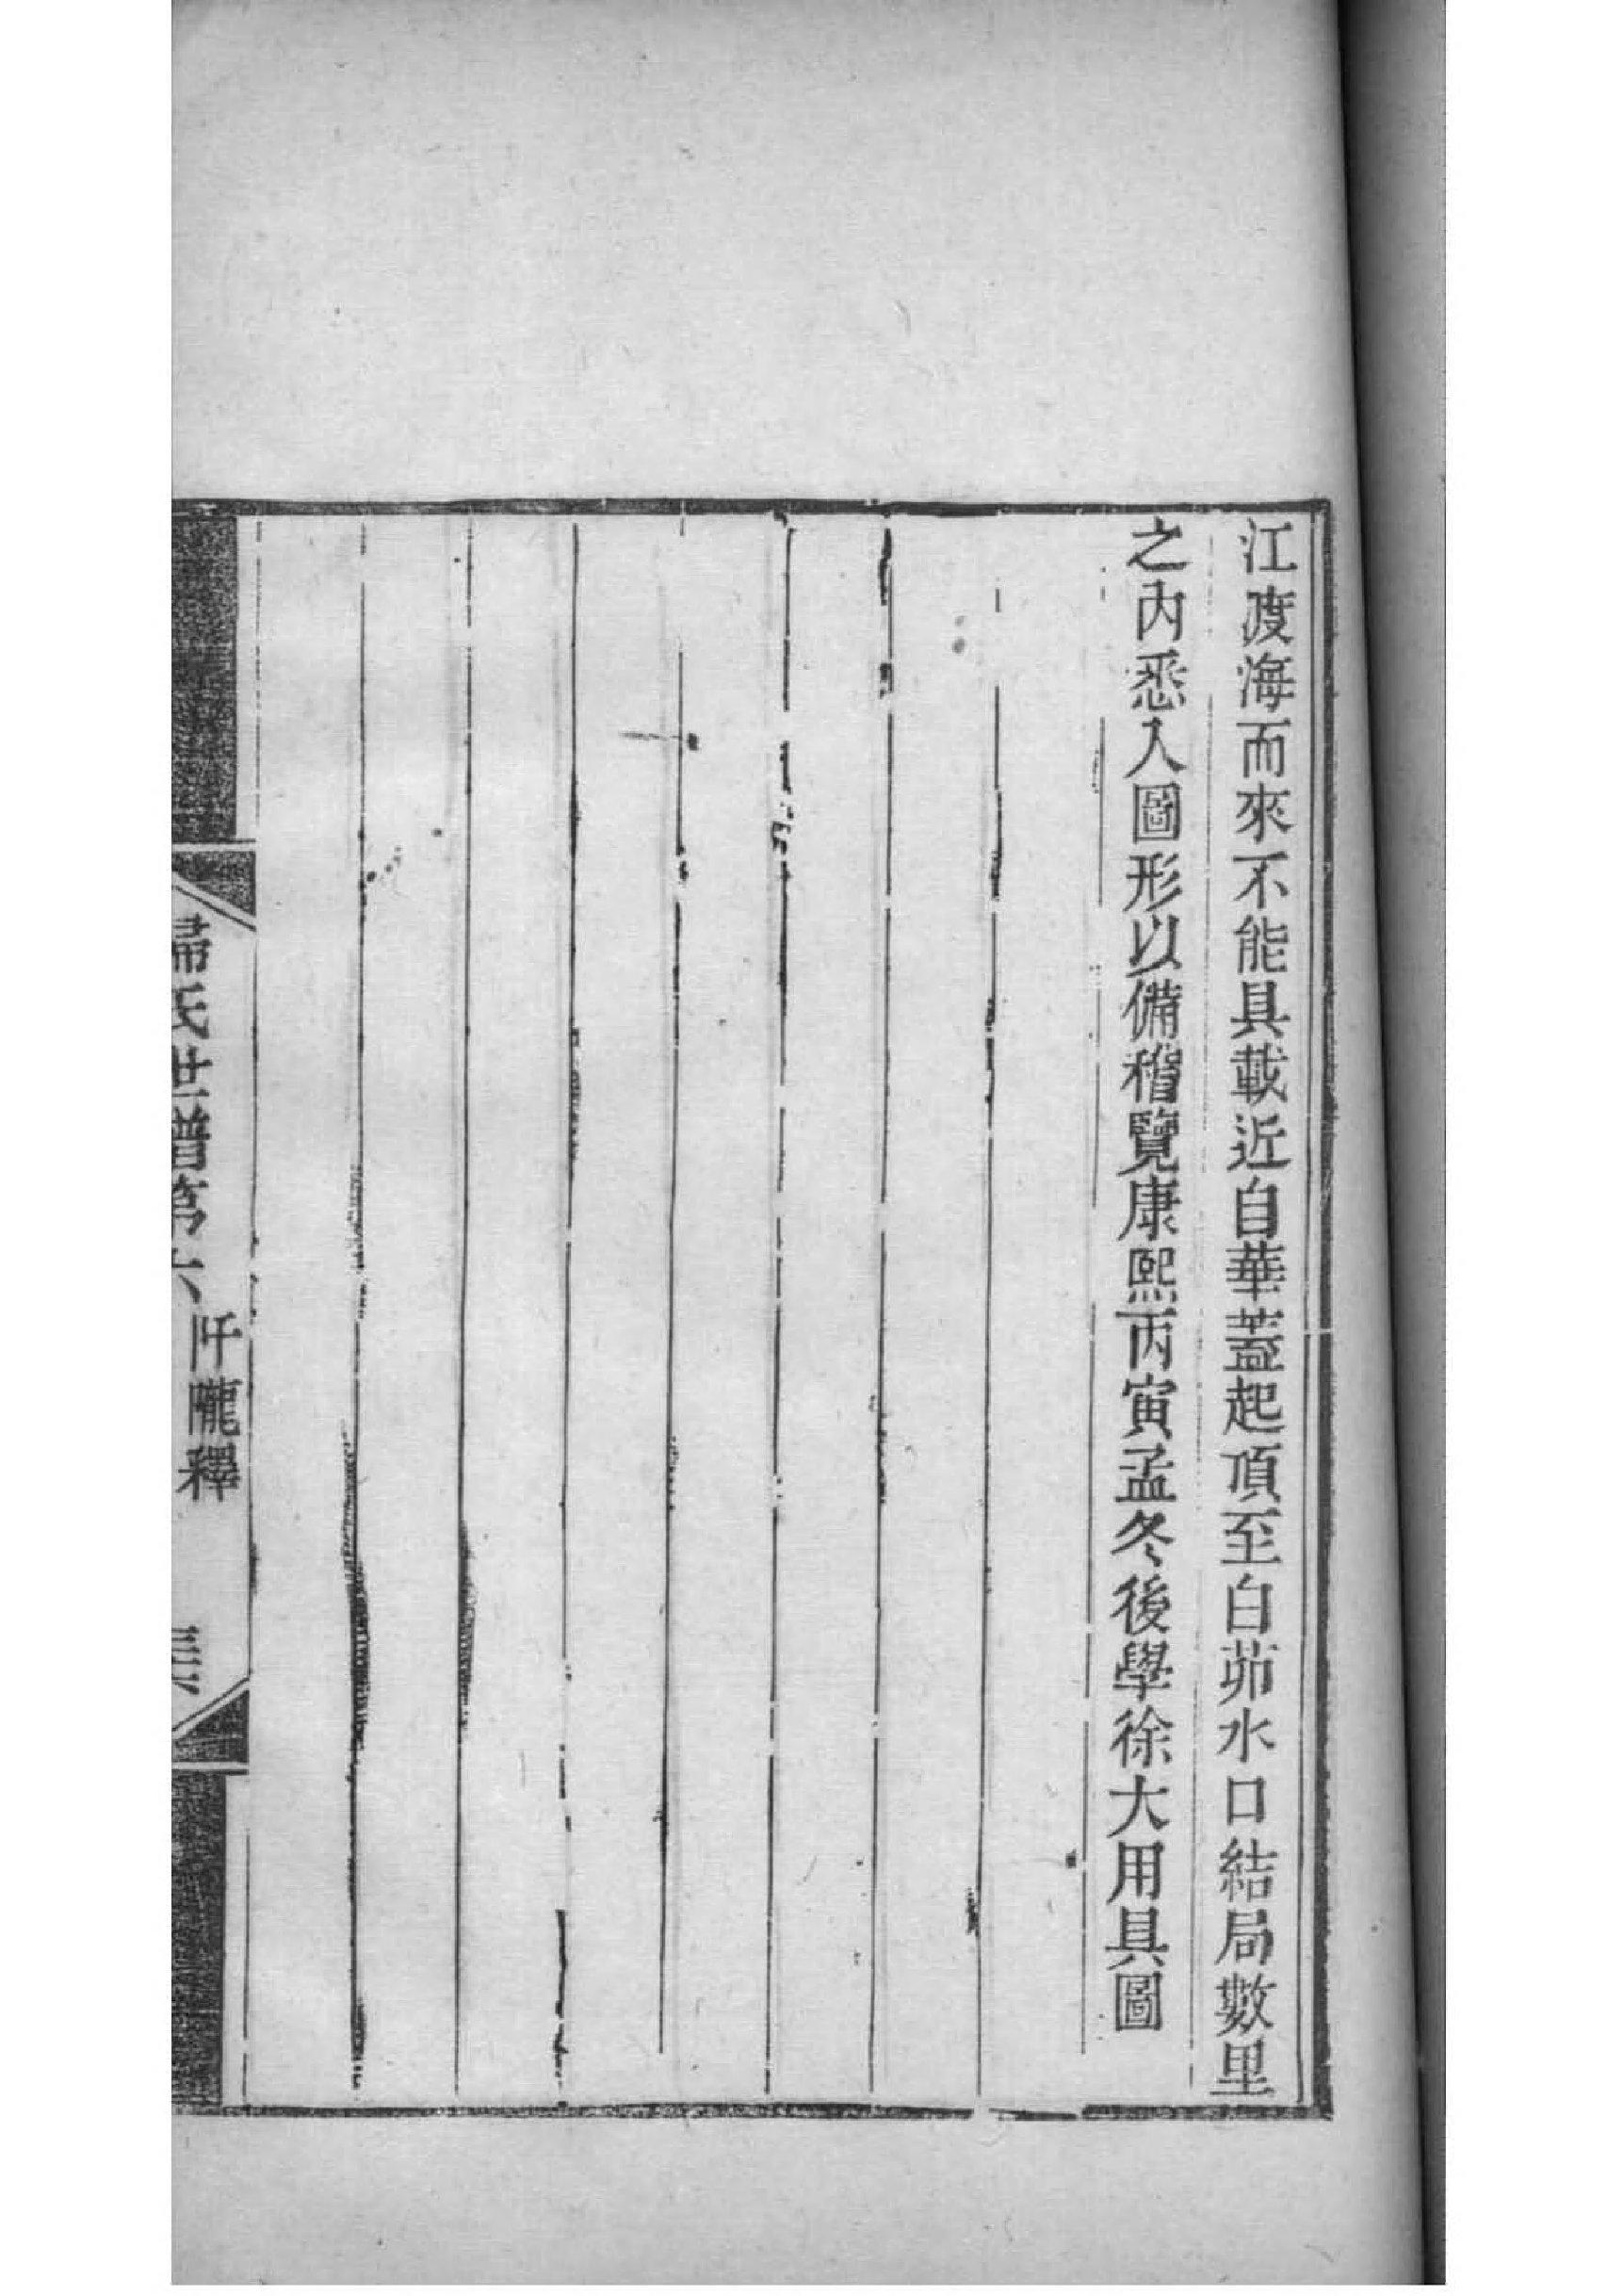 江渡海而來不能具載近自華蓋起頂至白茆水口結局數里
之內悉入圖形以備稽覽康熙丙寅孟冬後學徐大用具圖
歸氏世譜第六
阡隴釋